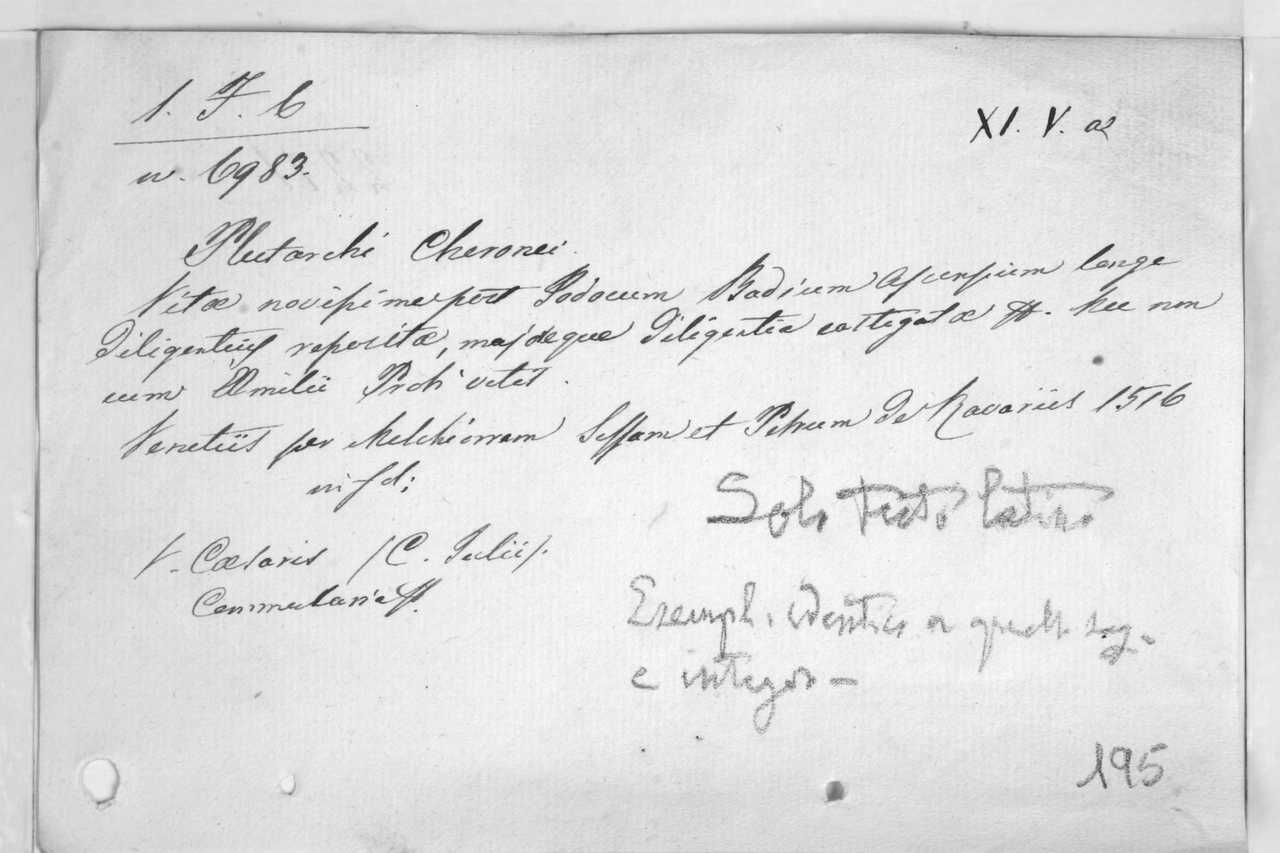 1. F. 6
XI. V. 02
n. 6983.
Plutarchi Cheronei.
Vitæ novissime post Jodocum Badium Ascensium longe
diligentius repositæ, majoreque diligentia castigatæ &. Nec non
cum Æmilii Probi vitis.
Venetiis per Melchiorrem Sessam et Petrum de Ravariis 1516
in fol:
V. Cæsaris /C. Julii/.
Commentaria
Solo testo latino
Exempl. identico a quello seg.
e integro —
195